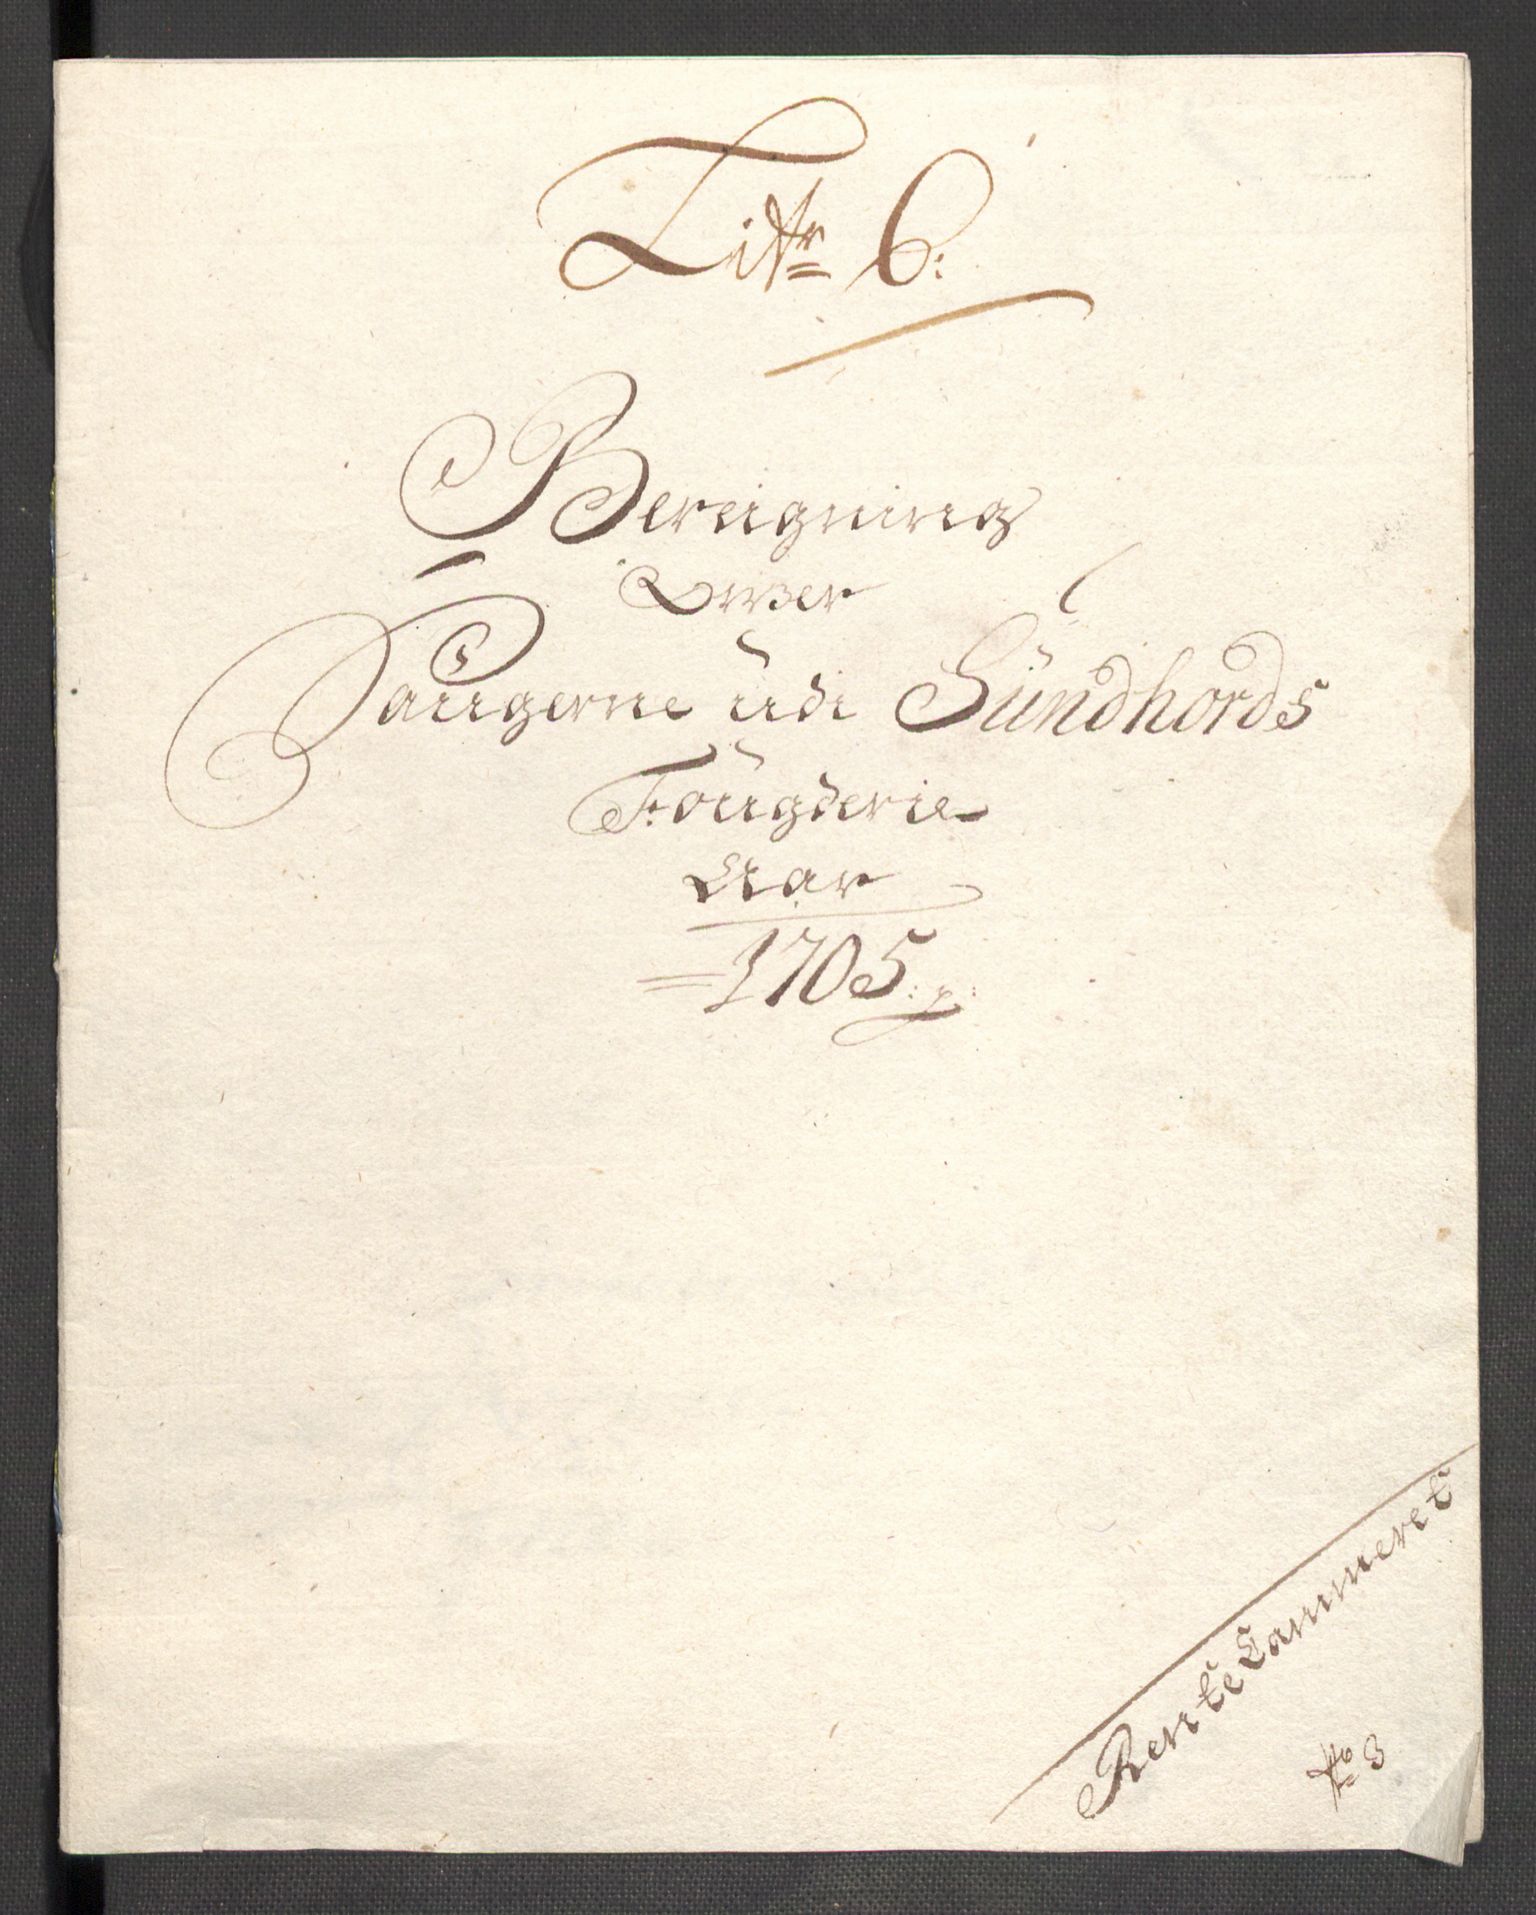 Littr 6:
Bereigning
Offver
Saugerne udi Sundhords
Fougderie
Aar
1705:
RenteCammeret
No 3